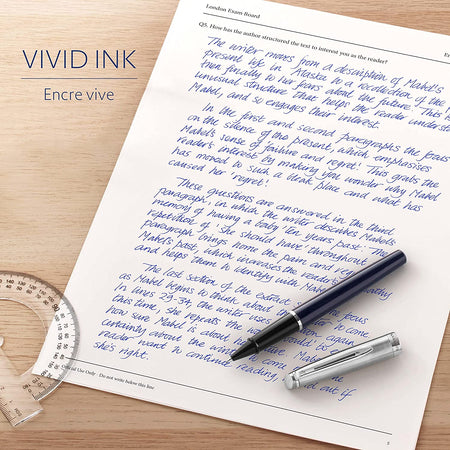 VIVID INK
Encre vive
London Exam Board
Q5. How has the author structured the text to interest you as the reader?
The writer moves from a description of Mabel's
present life in Alaska to a recollection of the
then finally to her fears about the future. This is
unusual structure that helps the reader underst
Mabel, and so engages their interest.
In the first and second paragraphs the focus
on the silence of the present, which emphasises
Mabel's sense of failure and regret! This grabs the
reader's interest by making you wonder why Mabel
has moved to such a bleak place and what has
caused her 'regret'.
These questions are answered in the third
paragraph, in which the writer describes Mabel's
memory of having a baby 'ten years past'. The
repetition of 'She should have' throughout
paragraph brings home the pain and reg
Mabel's past, which increases the reader's
pathy
and helps them to identify with Mabel
The last section of the extract
focus
as Mabel begins to think about the
to come
In lines 29-34, the writer uses
again
this time, she repeats the wo
'would' to
how sure Mabel is about her
Mabel
certainty about the winter to come
the
reader want to continue reading,
out if
she's right.
Use Only · Do not write below this line